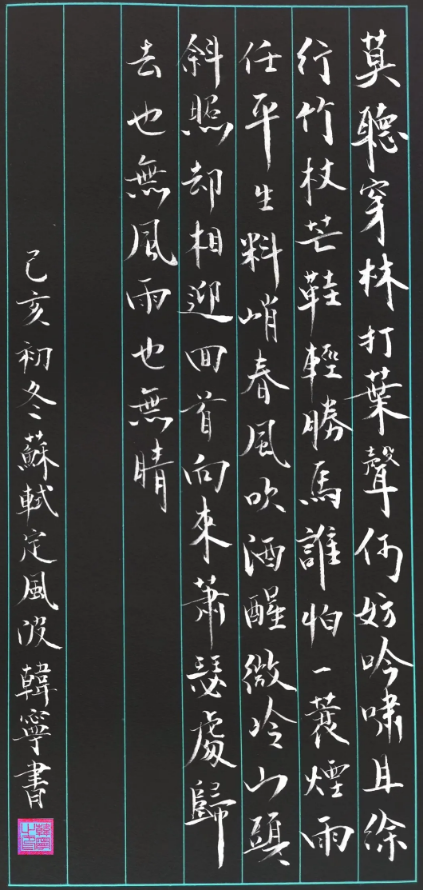 莫聽穿林打葉聲何妨吟嘯且徐
行竹杖芒鞋輕勝馬誰怕一蓑煙雨
任平生料峭春風吹酒醒微冷山頭
斜照却相迎回首向來蕭瑟處歸
去也無風雨也無晴
己亥初冬蘇軾定風波韓寧書